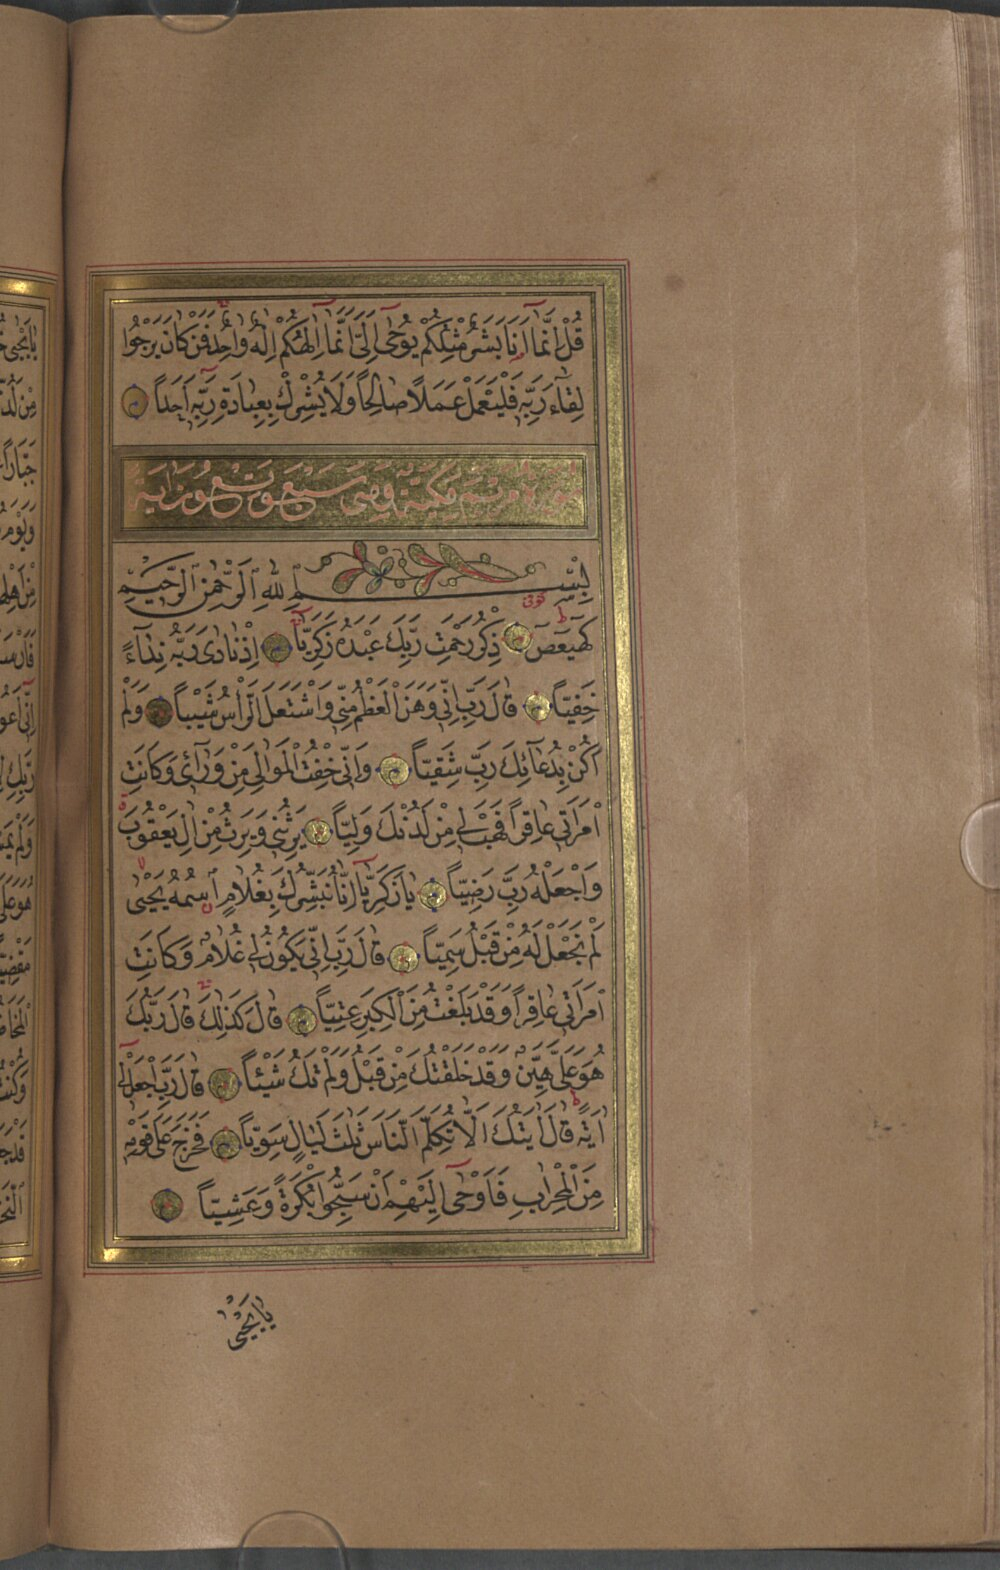 قُلْ اِنَّمَٓا اَنَا۬ بَشَرٌ مِثْلُكُمْ يُوحٰٓى اِلَىَّ اَنَّمَٓا اِلٰهُكُمْ اِلٰهٌ وَاحِدٌ فَمَنْ كَانَ يَرْجُوا
لِقَٓاءَ رَبِّه۪ فَلْيَعْمَلْ عَمَلاً صَالِحًا وَلَا يُشْرِكْ بِعِبَادَةِ رَبِّه۪ٓ اَحَدًا
سورة مريم مكية وهى سبع وتسعون اية
بِسْمِ اللهِ الرَّحْمٰنِ الرَّحِيمِ
كوفى
كٓهٰيٰعٓصٓ ذِكْرُ رَحْمَتِ رَبِّكَ عَبْدَهُ زَكَرِيَّا اِذْ نَادٰى رَبَّهُ نِدَٓاءً
خَفِيًّا قَالَ رَبِّ اِنّ۪ى وَهَنَ الْعَظْمُ مِنّ۪ى وَاشْتَعَلَ الرَّأْسُ شَيْبًا وَلَمْ
اَكُنْ بِدُعَٓائِكَ رَبِّ شَقِيًّا وَاِنّ۪ى خِفْتُ الْمَوَالِىَ مِنْ وَرَٓائ۪ى وَكَانَتِ
امْرَاَت۪ى عَاقِرًا فَهَبْ ل۪ى مِنْ لَدُنْكَ وَلِيًّا يَرِثُن۪ى وَيَرِثُ مِنْ اٰلِ يَعْقُوبَ
وَاجْعَلْهُ رَبِّ رَضِيًّا يَا زَكَرِيَّٓا اِنَّا نُبَشِّرُكَ بِغُلَامٍ اسْمُهُ يَحْيٰى
لَمْ نَجْعَلْ لَهُ مِنْ قَبْلُ سَمِيًّا قَالَ رَبِّ اَنّٰى يَكُونُ ل۪ى غُلَامٌ وَكَانَتِ
امْرَاَت۪ى عَاقِرًا وَقَدْ بَلَغْتُ مِنَ الْكِبَرِ عِتِيًّا قَالَ كَذٰلِكَ قَالَ رَبُّكَ
هُوَ عَلَىَّ هَيِّنٌ وَقَدْ خَلَقْتُكَ مِنْ قَبْلُ وَلَمْ تَكُ شَيْئًا قَالَ رَبِّ اجْعَلْ ل۪ٓى
اٰيَةً قَالَ اٰيَتُكَ اَلَّا تُكَلِّمَ النَّاسَ ثَلٰثَ لَيَالٍ سَوِيًّا فَخَرَجَ عَلٰى قَوْمِه۪
مِنَ الْمِحْرَابِ فَاَوْحٰٓى اِلَيْهِمْ اَنْ سَبِّحُوا بُكْرَةً وَعَشِيًّا
يَا يَحْيٰى